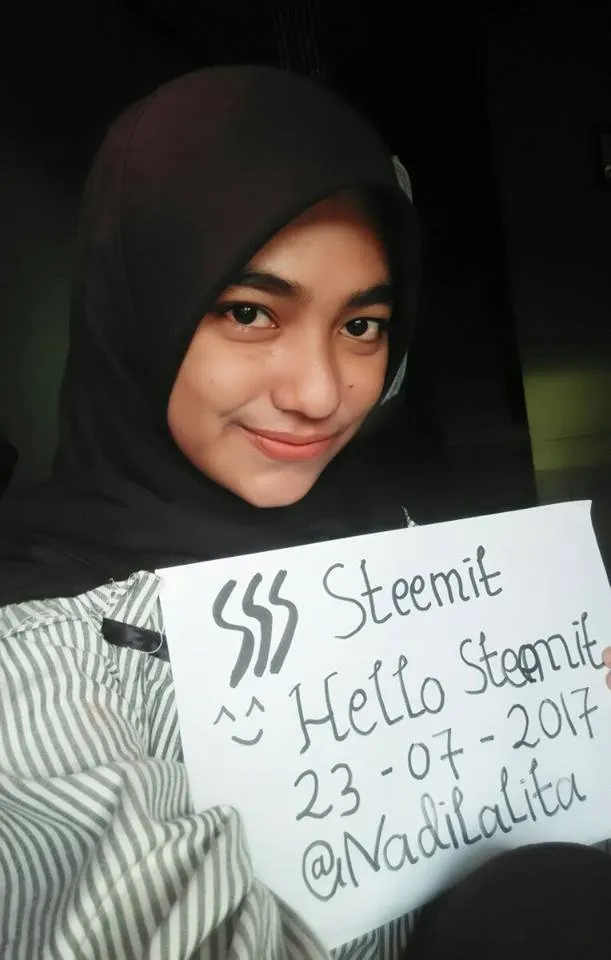 Steemit
Hello Steemit
23-07-2017
@NadiLalita